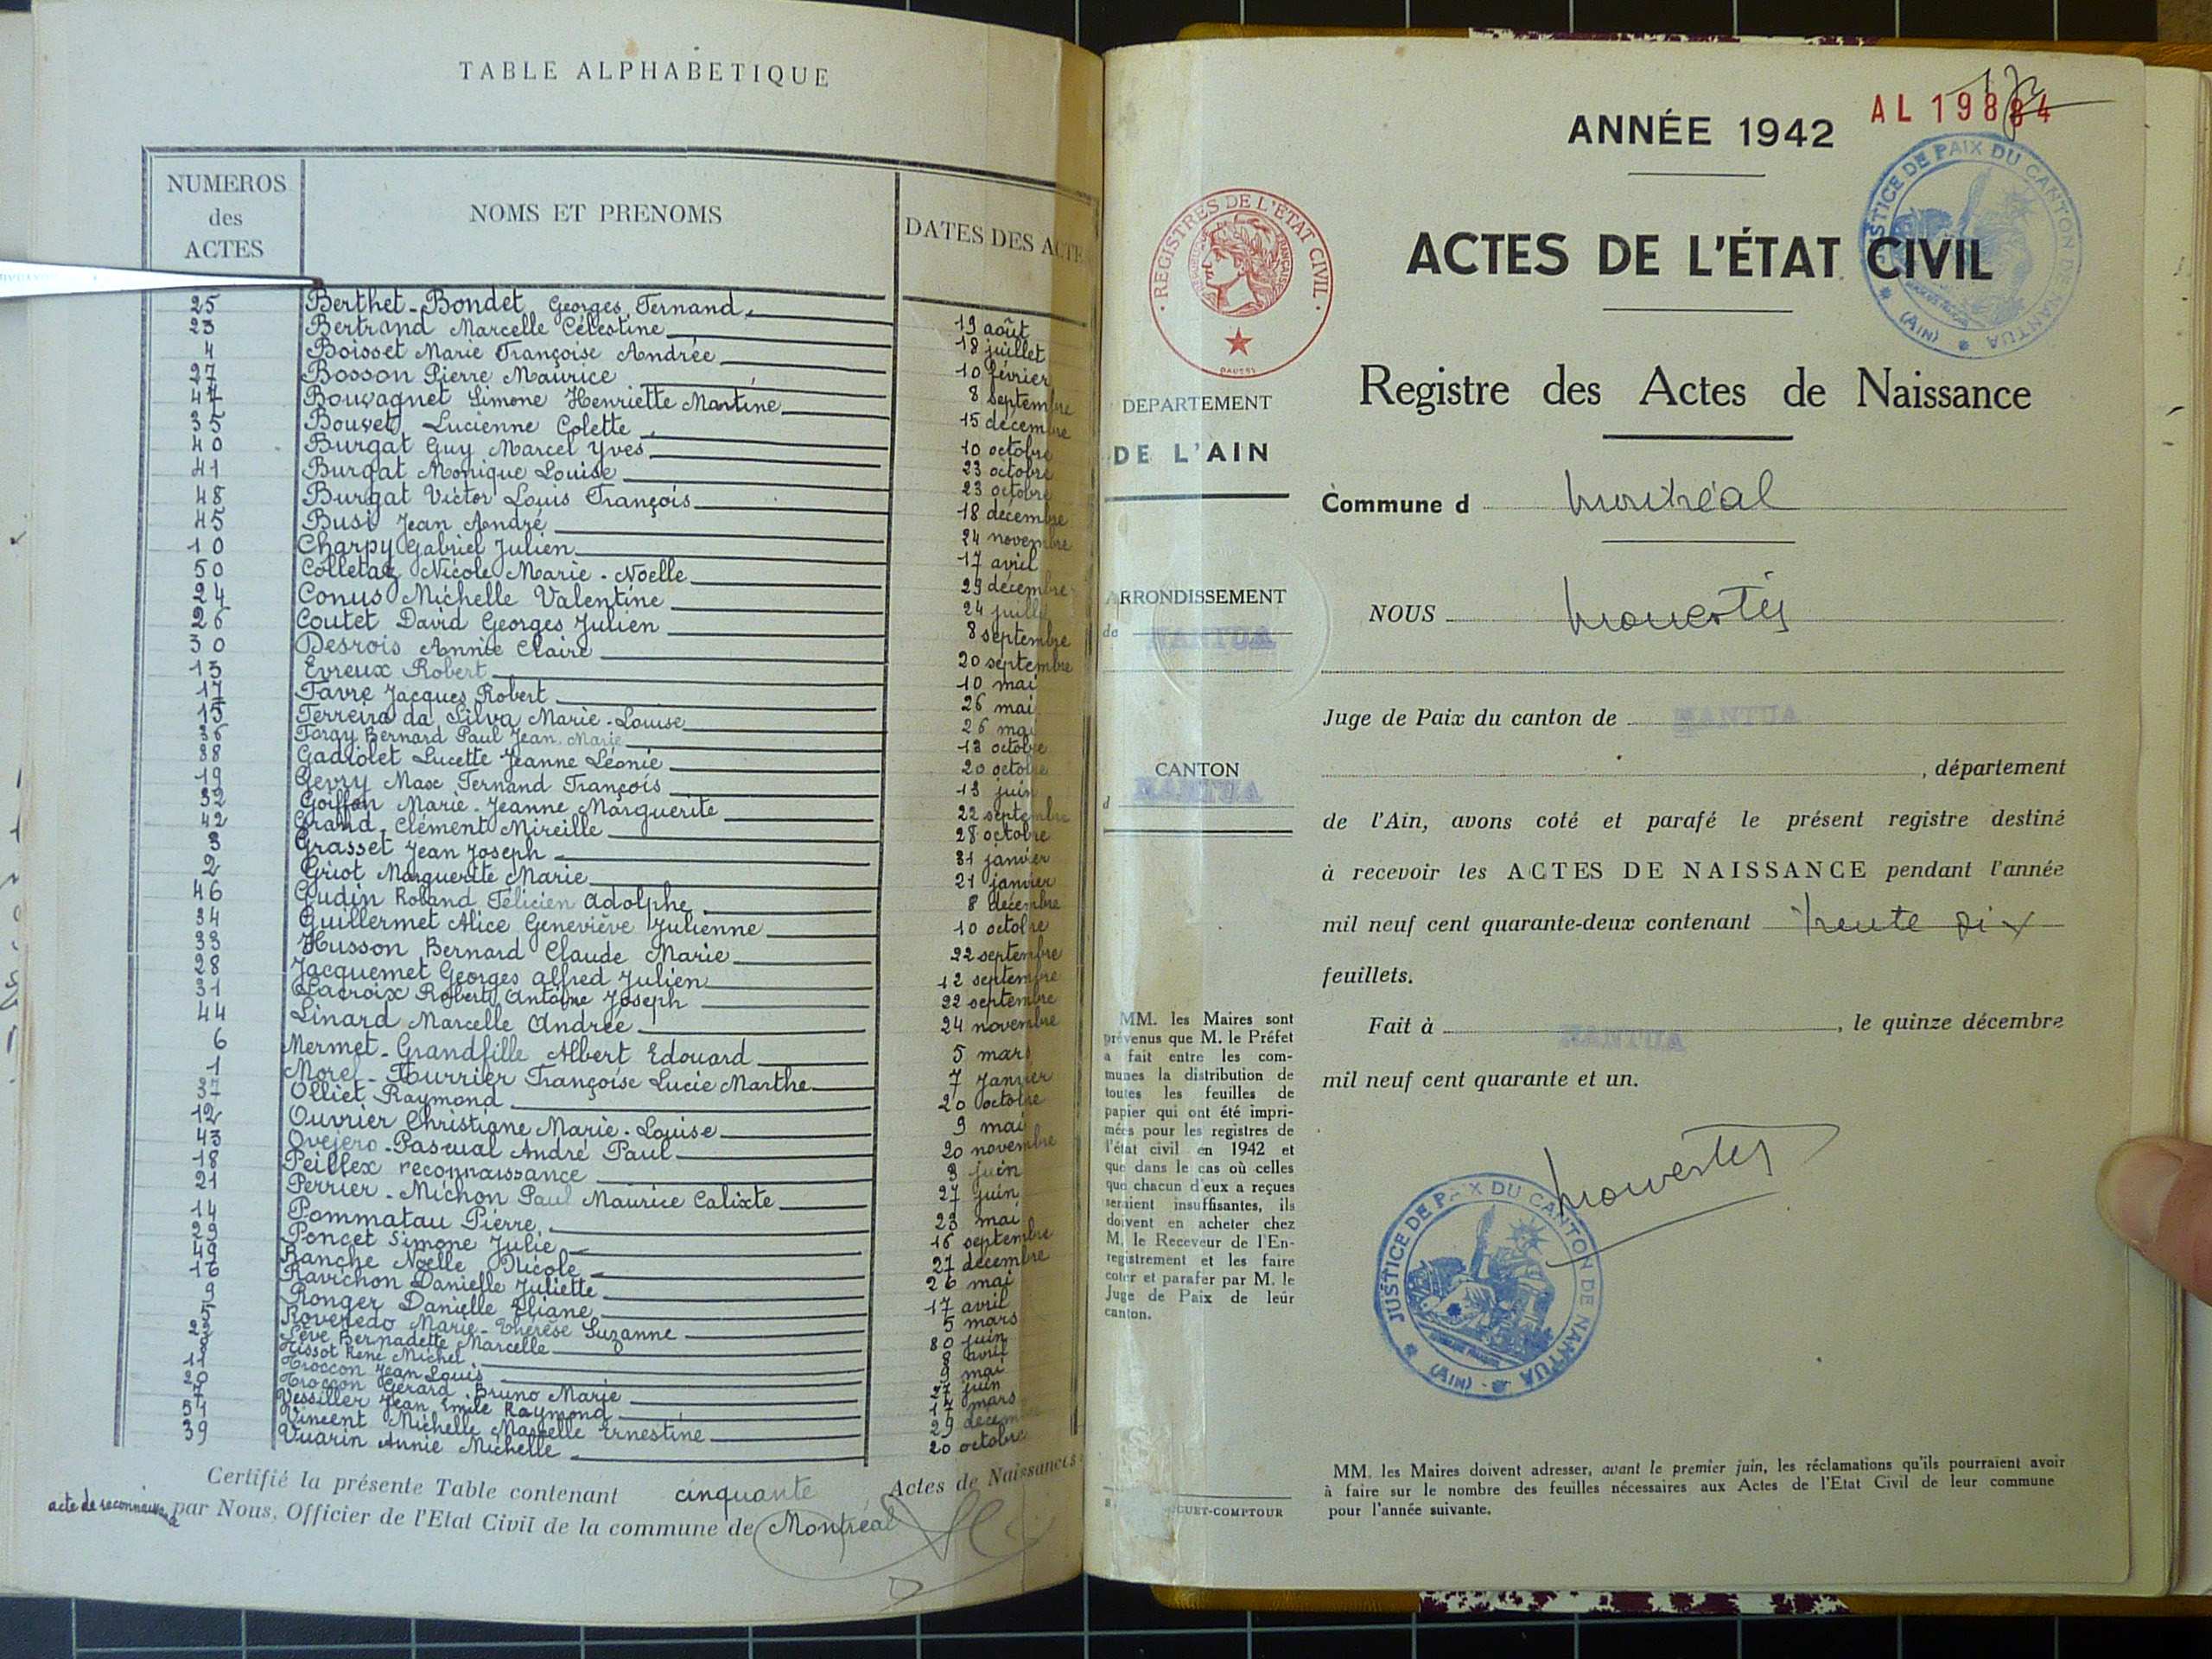 TABLE ALPHABETIQUE
NUMEROS des ACTES NOMS ET PRENOMS DATES DES ACTE
25 Berthet-Bondet Georges Fernand 19 août
23 Bertrand Marcelle Célestine 18 juillet
4 Boisset Marie Françoise Andrée 10 février
27 Bosson Pierre Maurice 8 septembre
47 Bouvagnet Simone Henriette Martine 15 décembre
35 Bouvet Lucienne Colette 10 octobre
40 Burgat Guy Marcel Yves 23 octobre
41 Burgat Monique Louise 23 octobre
48 Burgat Victor Louis François 18 décembre
45 Busi Jean André 24 novembre
10 Charpy Gabriel Julien 17 avril
50 Colletaz Nicole Marie-Noelle 29 décembre
24 Conus Michelle Valentine 24 juillet
26 Coutet David Georges Julien 8 septembre
30 Desrois Annie Claire 20 septembre
13 Evreux Robert 10 mai
17 Favre Jacques Robert 26 mai
15 Ferreira da Silva Marie-Louise 26 mai
36 Forgy Bernard Paul Jean Marie 13 octobre
38 Gadiolet Lucette Jeanne Léonie 20 octobre
19 Gevry Max Fernand François 13 juin
32 Goiffon Marie-Jeanne Marguerite 22 septembre
42 Grand-Clément Mireille 28 octobre
3 Grasset Jean Joseph 31 janvier
2 Griot Marguerite Marie 21 janvier
46 Gudin Roland Félicien Adolphe 8 décembre
34 Guillermet Alice Geneviève Julienne 10 octobre
33 Husson Bernard Claude Marie 22 septembre
28 Jacquemet Georges Alfred Julien 12 septembre
31 Lacroix Robert Antoine Joseph 22 septembre
44 Linard Marcelle Andrée 24 novembre
6 Mermet-Grandfille Albert Edouard 5 mars
1 Morel-Fourrier Françoise Lucie Marthe 7 janvier
37 Olliet Raymond 20 octobre
12 Ouvrier Christiane Marie-Louise 9 mai
43 Ovejero-Pascual André Paul 20 novembre
18 Peillex reconnaissance 3 juin
21 Perrier-Michon Paul Maurice Calixte 27 juin
14 Pommatau Pierre 23 mai
29 Poncet Simone Julie 16 septembre
49 Ranche Noëlle Nicole 27 décembre
16 Ravichon Danielle Juliette 26 mai
9 Ronger Danielle Eliane 17 avril
5 Roveredo Marie-Thérèse Suzanne 5 mars
Sève Bernadette Marcelle juin
Tissot René Michel avril
11 Troccon Jean Louis mai
20 Troccon Gérard Bruno Marie 27 juin
7 Vessiller Jean Emile Raymond 17 mars
51 Vincent Michelle Marcelle Ernestine 29 décem
39 Vuarin Annie Michelle 20 octobre
Certifié la présente Table contenant cinquante Actes de Naissances
acte de reconnaissance par Nous, Officier de l'Etat Civil de la commune de Montréal
AL 19884
ANNÉE 1942
JUSTICE DE PAIX DU CANTON DE NANTUA (AIN)
REGISTRES DE L'ÉTAT CIVIL
ACTES DE L'ÉTAT CIVIL
Registre des Actes de Naissance
DEPARTEMENT
DE L'AIN
Commune d Montréal
ARRONDISSEMENT
de NANTUA
NOUS
Juge de Paix du canton de NANTUA
CANTON
d NANTUA
, département
de l'Ain, avons coté et parafé le présent registre destiné
à recevoir les ACTES DE NAISSANCE pendant l'année
mil neuf cent quarante-deux contenant trente six
feuillets.
Fait à NANTUA, le quinze décembre
mil neuf cent quarante et un.
MM. les Maires sont
prévenus que M. le Préfet
a fait entre les com-
munes la distribution de
toutes les feuilles de
papier qui ont été impri-
mées pour les registres de
l'état civil en 1942 et
que dans le cas où celles
que chacun d'eux a reçues
seraient insuffisantes, ils
doivent en acheter chez
M. le Receveur de l'En-
registrement et les faire
coter et parafer par M. le
Juge de Paix de leur
canton.
JUSTICE DE PAIX DU CANTON DE NANTUA (AIN)
GUET-COMPTOUR
MM. les Maires doivent adresser, avant le premier juin, les réclamations qu'ils pourraient avoir
à faire sur le nombre des feuilles nécessaires aux Actes de l'Etat Civil de leur commune
pour l'année suivante.